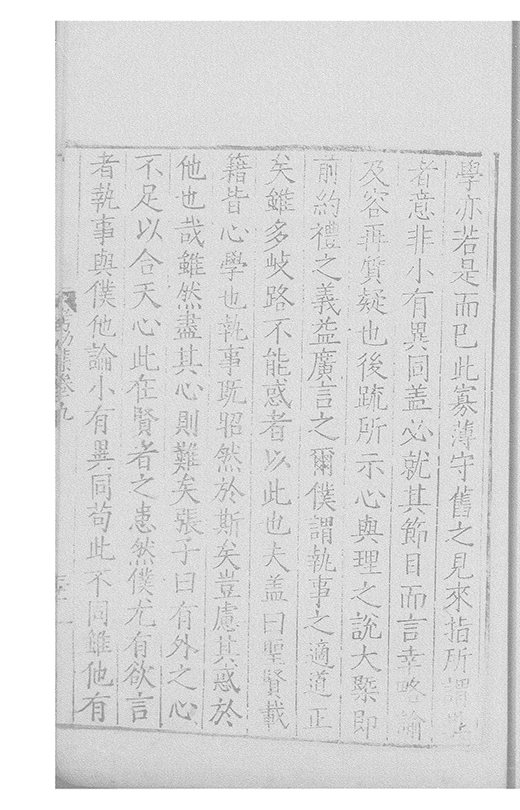 學亦若是而已此寡薄守舊之見來指所謂
者意非小有異同盖必就其節目而言幸略論
及容再質疑也後䟽所示心與理之說大槩即
前約禮之義益廣言之爾僕謂執事之適道正
矣雖多岐路不能惑者以此也夫盖曰聖賢載
籍皆心學也執事旣昭然於斯矣豈慮其惑於
他也哉雖然盡其心則難矣張子曰有外之心
不足以合天心此在賢者之恚然僕尤有欲言
者執事與僕他論小有異同苟此不同雖他有
集卷九